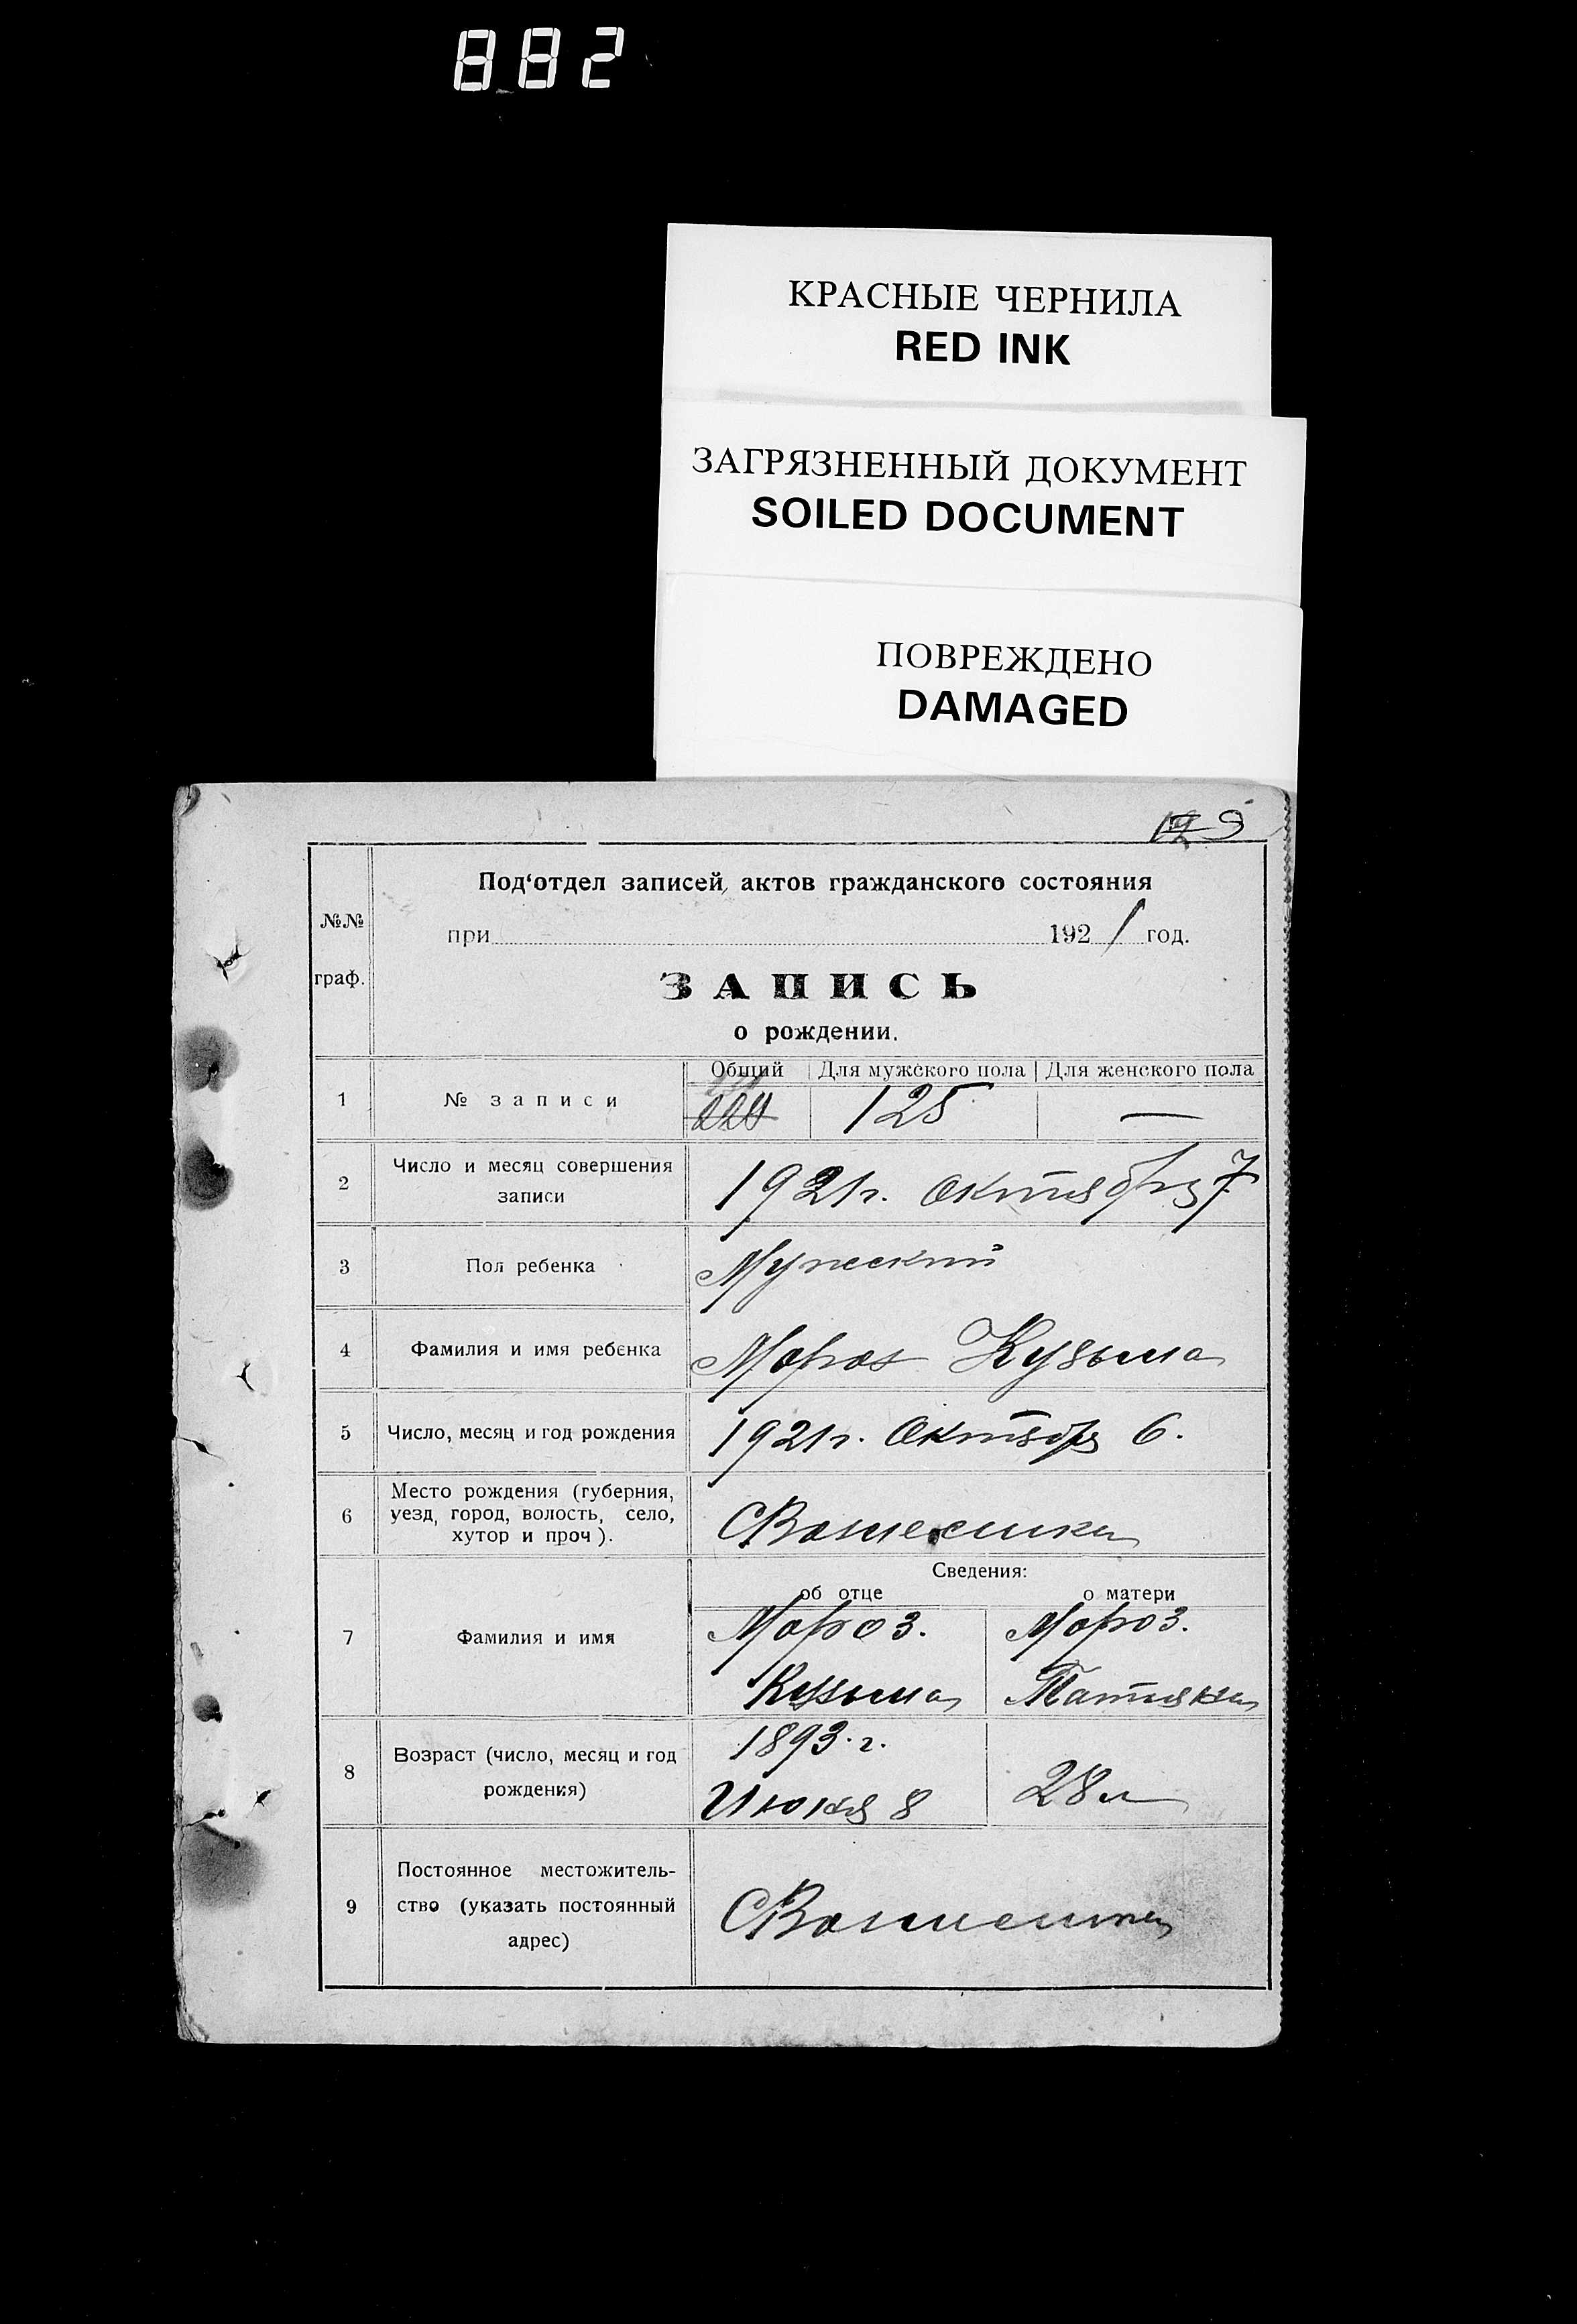 882
КРАСНЫЕ ЧЕРНИЛА
RED INK
ЗАГРЯЗНЕННЫЙ ДОКУМЕНТ
SOILED DOCUMENT
ПОВРЕЖДЕНО
DAMAGED
Под‘отдел записей актов гражданского состояния
№№ граф.
при 1921 год.
ЗАПИСЬ
о рождении.
Общий Для мужского пола Для женского пола
1 № записи 125 —
2 Число и месяц совершения
записи
1921 г. Октября 7
3 Пол ребенка Мужский
4 Фамилия и имя ребенка Мороз Кузьма
5 Число, месяц и год рождения 1921 г. Октября 6.
6 Место рождения (губерния,
уезд, город, волость, село,
хутор и проч).
Сведения:
об отце о матери
7 Фамилия и имя
Мороз. Мороз.
Кузьма Татияна
8 Возраст (число, месяц и год
рождения)
1893 г.
Июня 8 28 л
9 Постоянное местожитель-
ство (указать постоянный
адрес)